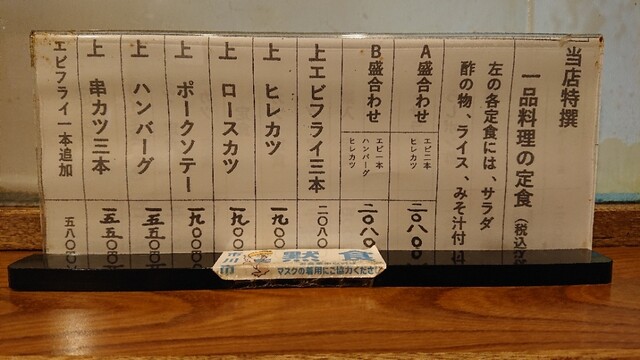 当店特撰
一品料理の定食(税込
左の各定食には、サラダ
酢の物、ライス、みそ汁付
A盛合わせ エビ二本 ヒレカツ 二〇八〇
B盛合わせ エビ一本 ハンバーグ ヒレカツ 二〇八〇
上エビフライ三本 二〇八〇
上 ヒレカツ 一九〇
上 ロースカツ 一九〇
上 ポークソテー 一九〇〇
上 ハンバーグ 一五五〇
上 串カツ三本 一五五〇
エビフライ一本追加 五八〇
市川市
黙食
マスクの着用にご協力ください